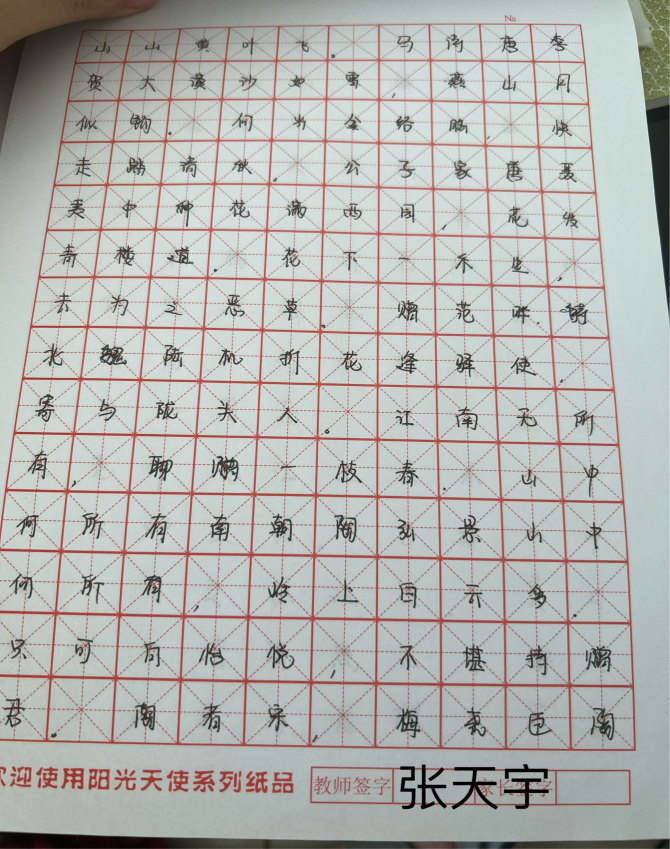 No
山山黄叶飞。马诗唐李
贺大漠沙如雪,燕山月
似钩。何当金络脑,快
走踏清秋。公子家唐聂
夷中种花满西园,花发
青楼道。花下一禾生,
去为之恶草。赠范晔诗
北魏陆凯折花逢驿使,
寄与陇头人。江南无所
有,聊赠一枝春。山中
何所有南朝陶弘景山中
何所有,岭上白云多。
只可自怡悦,不堪持赠
君。陶者宋,梅尧臣陶
欢迎使用阳光天使系列纸品 教师签字 张天宇 家长签字